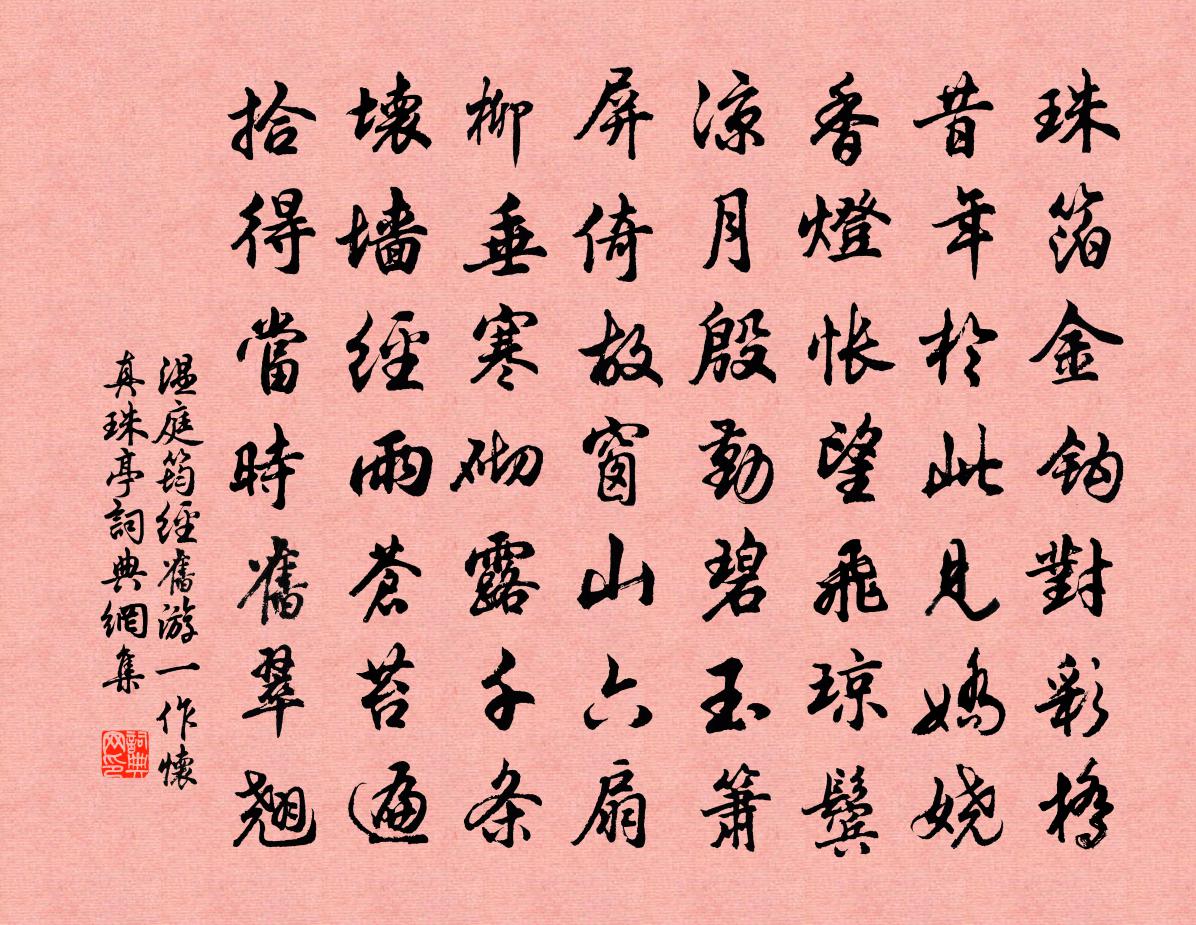 珠箔金鈎對彩橋
昔年於此見嬌嬈
香燈悵望飛瓊鬢
涼月殷勤碧玉簫
屏倚故窗山六扇
柳垂寒砌露千条
壊墙經雨蒼苔遍
拾得當時舊翠翹
温庭筠經舊游一作懷
真珠亭詞典網集
詞典网印